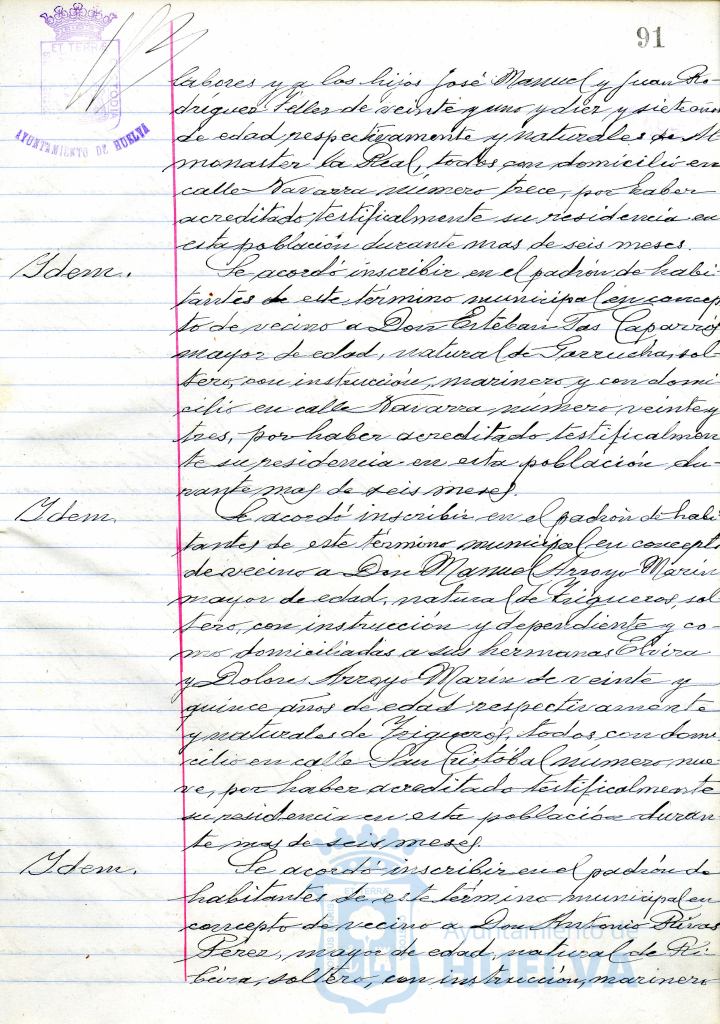 91
ET TERRÆ
AYUNTAMIENTO DE HUELVA
labores y a los hijos José Manuel y Juan Ro-
driguez Téller de veinte y uno y diez y siete años
de edad respectivamente y naturales de Al-
monaster la Real, todos con domicilio en
calle Navarra número trece, por haber
acreditado testificalmente su residencia en
esta población durante mas de seis meses.
Idem. Se acordó inscribir en el padrón de habi-
tantes de este término municipal en concep-
to de vecino a Don Esteban Tas Caparrós
mayor de edad, natural de Garrucha, sol-
tero, con instrucción, marinero y con domi-
cilio en calle Navarra número veinte y
tres, por haber acreditado testificalmen-
te su residencia en esta población du-
rante mas de seis meses.
Idem. Se acordó inscribir en el padrón de habi-
tantes de este término municipal en concepto
de vecino a Don Manuel Arroyo Marín
mayor de edad, natural de Trigueros, sol-
tero, con instrucción y dependiente y co-
mo domiciliadas a sus hermanas Elvira
y Dolores Arroyo Marín de veinte y
quince años de edad respectivamente
y naturales de Trigueros, todos con domi-
cilio en calle San Cristóbal número nue-
ve, por haber acreditado testificalmente
su residencia en esta población duran-
te mas de seis meses.
Idem. Se acordó inscribir en el padrón de
habitantes de este término municipal en
concepto de vecino a Don Antonio Rivas
Pérez, mayor de edad, natural de Ri-
beira, soltero, con instrucción, marinero
Ayuntamiento de
HUELVA